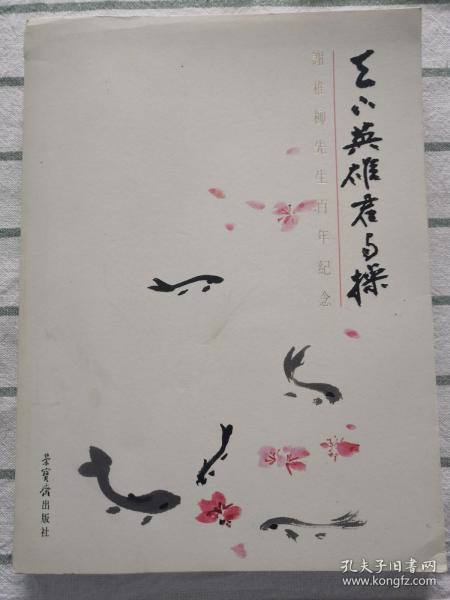 天下英雄君与操
谢稚柳先生百年纪念
荣宝斋出版社
孔夫子旧书网
www.kongfz.com